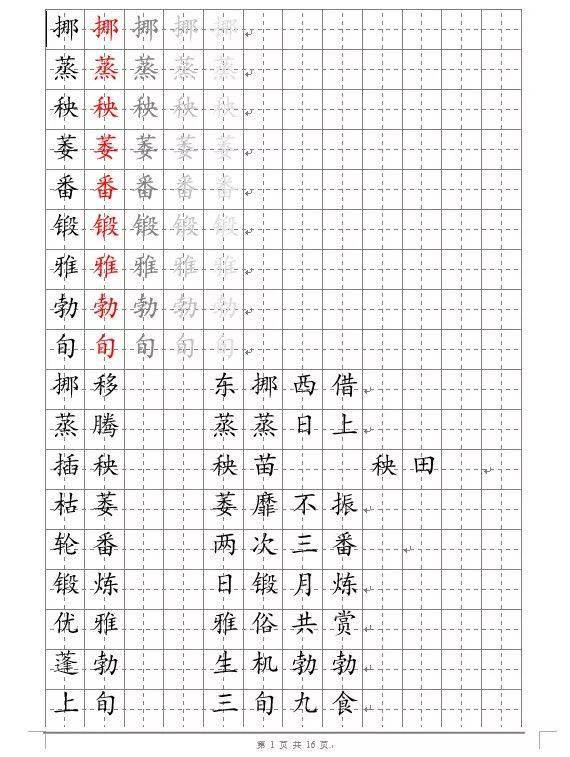 挪 挪 挪 挪 挪
蒸 蒸 蒸 蒸 蒸
秧 秧 秧 秧 秧
萎 萎 萎 萎 萎
番 番 番 番 番
锻 锻 锻 锻 锻
雅 雅 雅 雅 雅
勃 勃 勃 勃 勃
旬 旬 旬 旬 旬
挪移 东挪西借
蒸腾 蒸蒸日上
插秧 秧苗 秧田
枯萎 萎靡不振
轮番 两次三番
锻炼 日锻月炼
优雅 雅俗共赏
蓬勃 生机勃勃
上旬 三旬九食
第 1 页 共 16 页